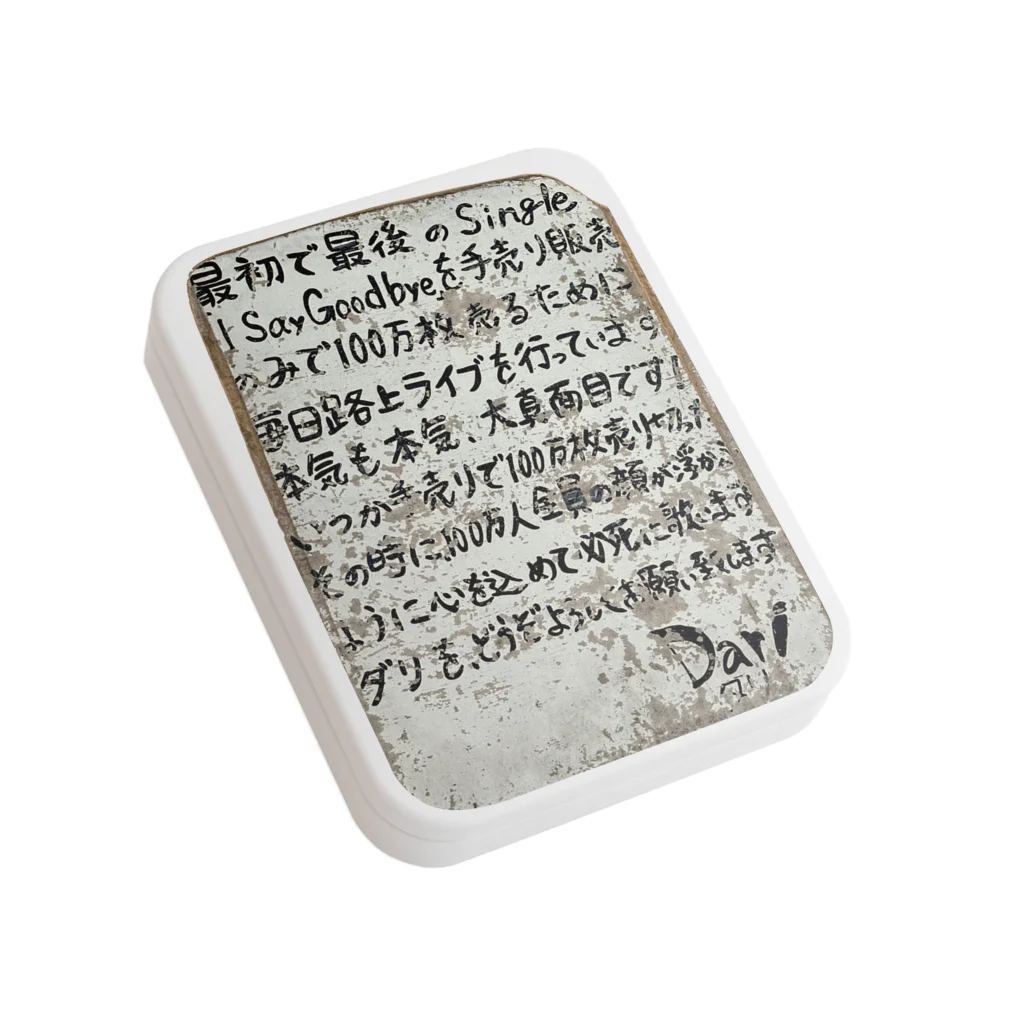 最初で最後のSingle
I Say Goodbyeを手売り販売
のみで100万枚売るために
毎日路上ライブを行っています
本気も本気、大真面目です!
いつか手売りで100万枚売り切った
その時に100万人全員の顔が浮かぶ
ように心を込めて必死に歌います
ダリを、どうぞよろしくお願い致します
Dari
ダリ